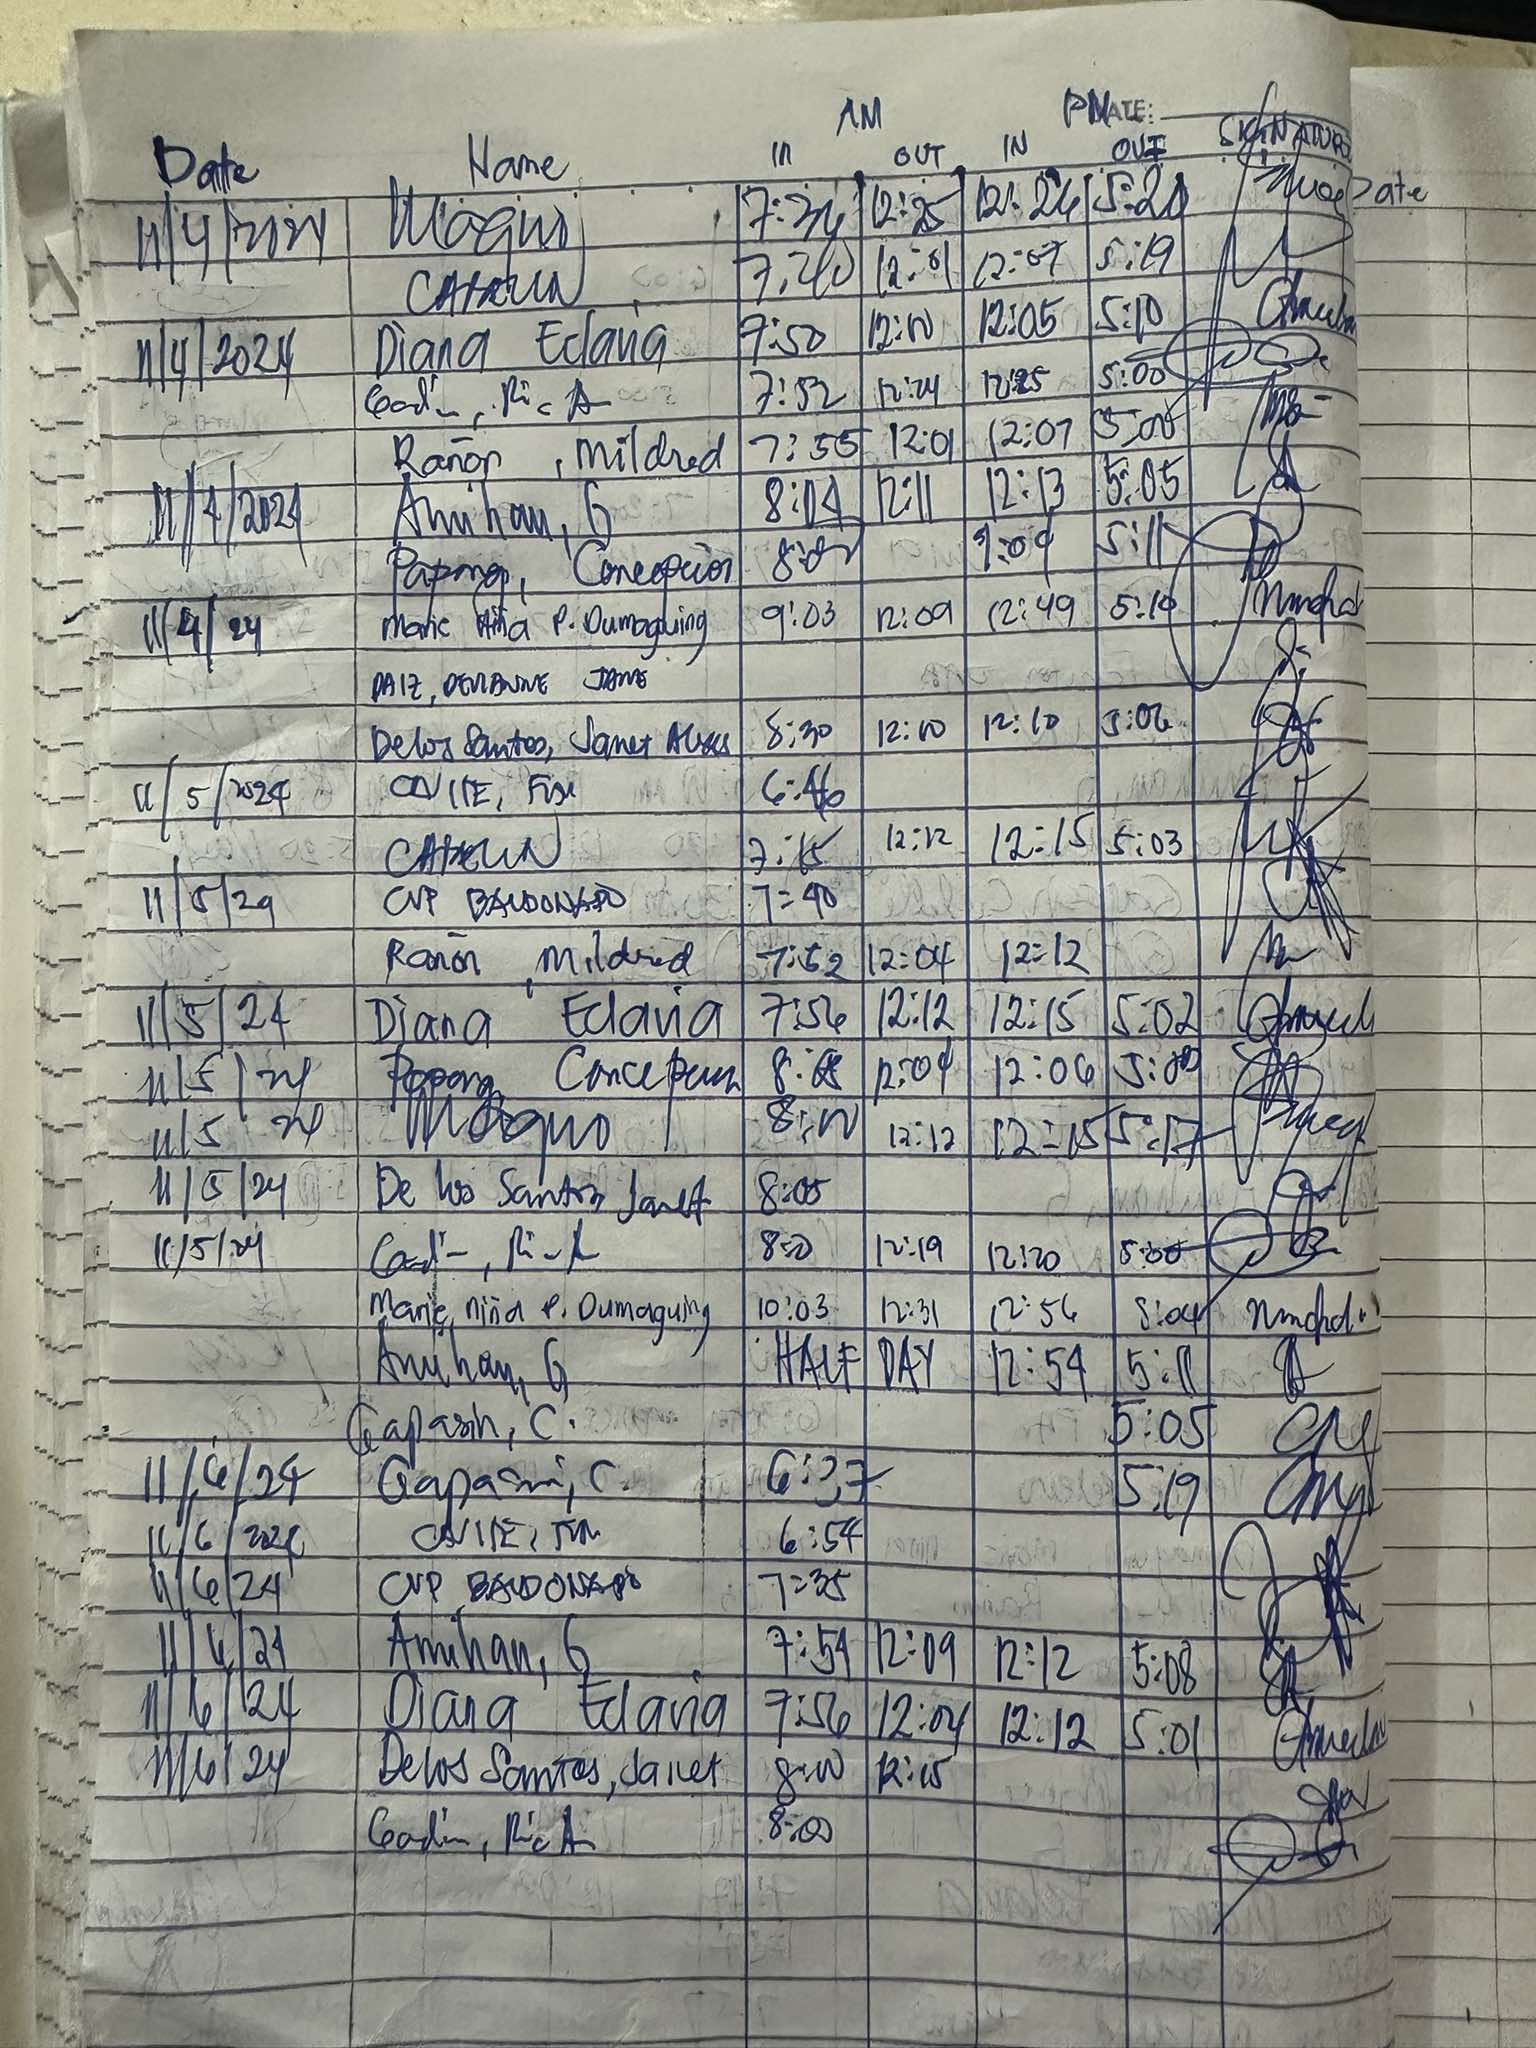 AM PM ATE:
Date Name IN OUT IN OUT SIGNATURE
11/4/2024 7:34 12:25 12:26 5:20
7:40 12:01 12:07 5:19
Date
11/4/2024 Diana Eclavia 7:50 12:00 12:05 5:10
Gadin, Ric A 7:52 12:24 12:25 5:00
Rañon, Mildred 7:55 12:01 12:07 5:00
11/4/2024 Anuhan, G 8:04 12:11 12:13 5:05
Papong, Concepcion 5:11
11/4/24 Marie Niña P. Dumaguing 9:03 12:09 12:49 5:10
PAIZ, JANE
Delos Santos, Janet 8:30 12:10 12:10 5:06
11/5/2024 CAVITE, 6:46
7:15 12:12 12:15 5:03
11/5/24 CVP BALDONADO 7=40
Rañon, Mildred 7:52 12:04 12:12
11/5/24 Diana Eclavia 7:56 12:12 12:15 5:02
11/5/24 Papong Concepcion 12:04 12:06 5:00
11/5 24 8:00 12:12 12=15 5:17
11/5/24 De los Santos Janet 8:05
11/5/24 Gadin, Ric A 12:19 12:20 5:00
Marie Niña P. Dumaguing 10:03 12:31 12:56 5:04
Anuhan, G HALF DAY 12:54 5:11
Gapasin, C. 5:05
11/6/24 Gapasin, C. 6:37 5:19
11/6/2024 CAVITE, 6:54
11/6/24 CVP BALDONADO 7=35
11/6/24 Anuhan, G 7:54 12:09 12:12 5:08
11/6/24 Diana Eclavia 7:56 12:04 12:12 5:01
11/6/24 Delos Santos, Janet 8:00 12:15
Gadin, Ric A 8:00